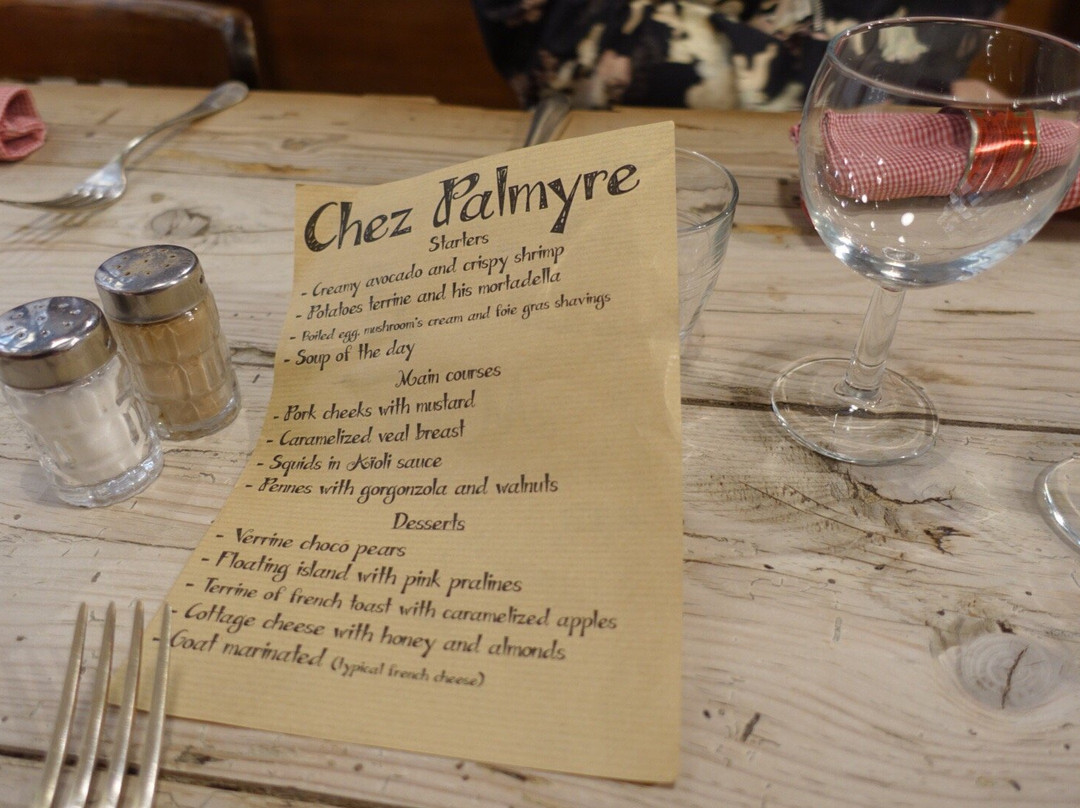 Chez Palmyre
Starters
- Creamy avocado and crispy shrimp
- Potatoes terrine and his mortadella
- Boiled egg, mushroom's cream and foie gras shavings
- Soup of the day
Main courses
- Pork cheeks with mustard
- Caramelized veal breast
- Squids in Aïoli sauce
- Pennes with gorgonzola and walnuts
Desserts
- Verrine choco pears
- Floating island with pink pralines
- Terrine of french toast with caramelized apples
- Cottage cheese with honey and almonds
- Goat marinated (typical french cheese)